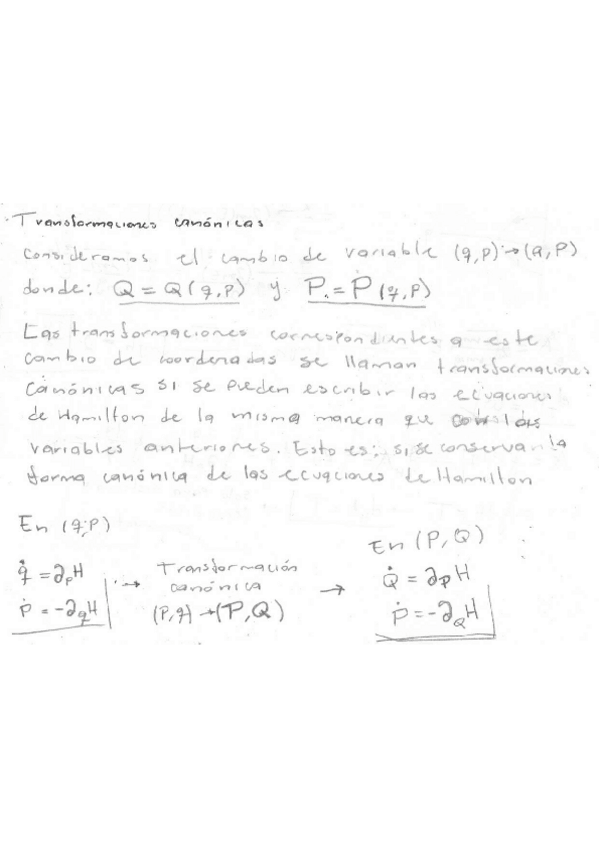 Transformaciones canónicas
Consideramos el cambio de variable (q,p)→(Q,P)
donde: Q = Q(q,p) y P = P(q,p)
Las transformaciones correspondientes a este
cambio de coordenadas se llaman transformaciones
canónicas si se pueden escribir las ecuaciones
de Hamilton de la misma manera que las
variables anteriores. Esto es: si se conservan la
forma canónica de las ecuaciones de Hamilton
En (q,p)
q̇ = ∂ₚH
ṗ = -∂qH
→ Transformación
canónica
(p,q)→(P,Q)
→
En (P,Q)
Q̇ = ∂PH
Ṗ = -∂QH